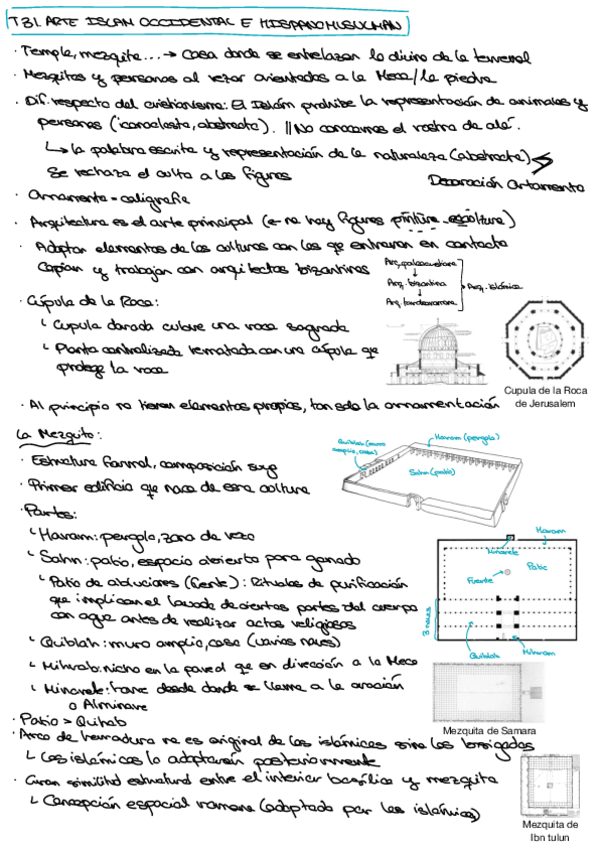 T31. ARTE ISLAM OCCIDENTAL E HISPANOMUSULMAN
· Temple, mezquita... → Casa donde se entrelazan lo divino de lo terrenal
· Mezquitas y personas al rezar orientados a la Meca / la piedra
· Dif. respecto del cristianismo: El Islam prohibe la representación de animales y
personas (iconoclasta, abstracto). // No conocemos el rostro de alá.
↳ la palabra escrita y representación de la naturaleza (abstracta)
Se rechaza el culto a las figuras
Decoración
· Ornamento = caligrafia
· Arquitectura es el arte principal (no hay figuras pintura escultura)
· Adoptan elementos de las culturas con las que entraron en contacto
Copian y trabajan con arquitectos bizantinos
Arq. paleocristiana
↓
Arq. bizantina
↓
Arq. tardorromana
Arq. islámica
· Cúpula de la Roca:
↳ Cupula dorada cubre una roca sagrada
↳ Planta centralizada rematada con una cúpula que
protege la roca
Cupula de la Roca
de Jerusalem
· Al principio no tienen elementos propios, tan solo la ornamentación
La Mezquita:
· Estructura formal, composición suya
· Primer edificio que nace de esta cultura
· Partes:
Quiblah (muro
amplio, casa)
Haram (pergola)
Sahn (patio)
↳ Haram: pergola, zona de rezo
↳ Sahn: patio, espacio abierto para ganado
↳ Patio de abluciones (fuente): Rituales de purificación
que implican el lavado de ciertas partes del cuerpo
con agua antes de realizar actos religiosos
↳ Quiblah: muro amplio, casa (varias naves)
↳ Mihrab: nicho en la pared que en dirección a la Meca
↳ Minarete: torre desde donde se llama a la oración
o Alminar
Minarete
Haram
Patio
Fuente
3 naves
Quiblah
Mihrab
Mezquita de Samara
· Patio > Quibah
· Arco de herradura no es original de los islámicos sino los
↳ Los islámicos lo adoptarán posteriormente
· Gran similitud estructural entre el interior basílica y mezquita
↳ Concepción espacial romana (adoptado por los islámicos)
Mezquita de
Ibn tulun